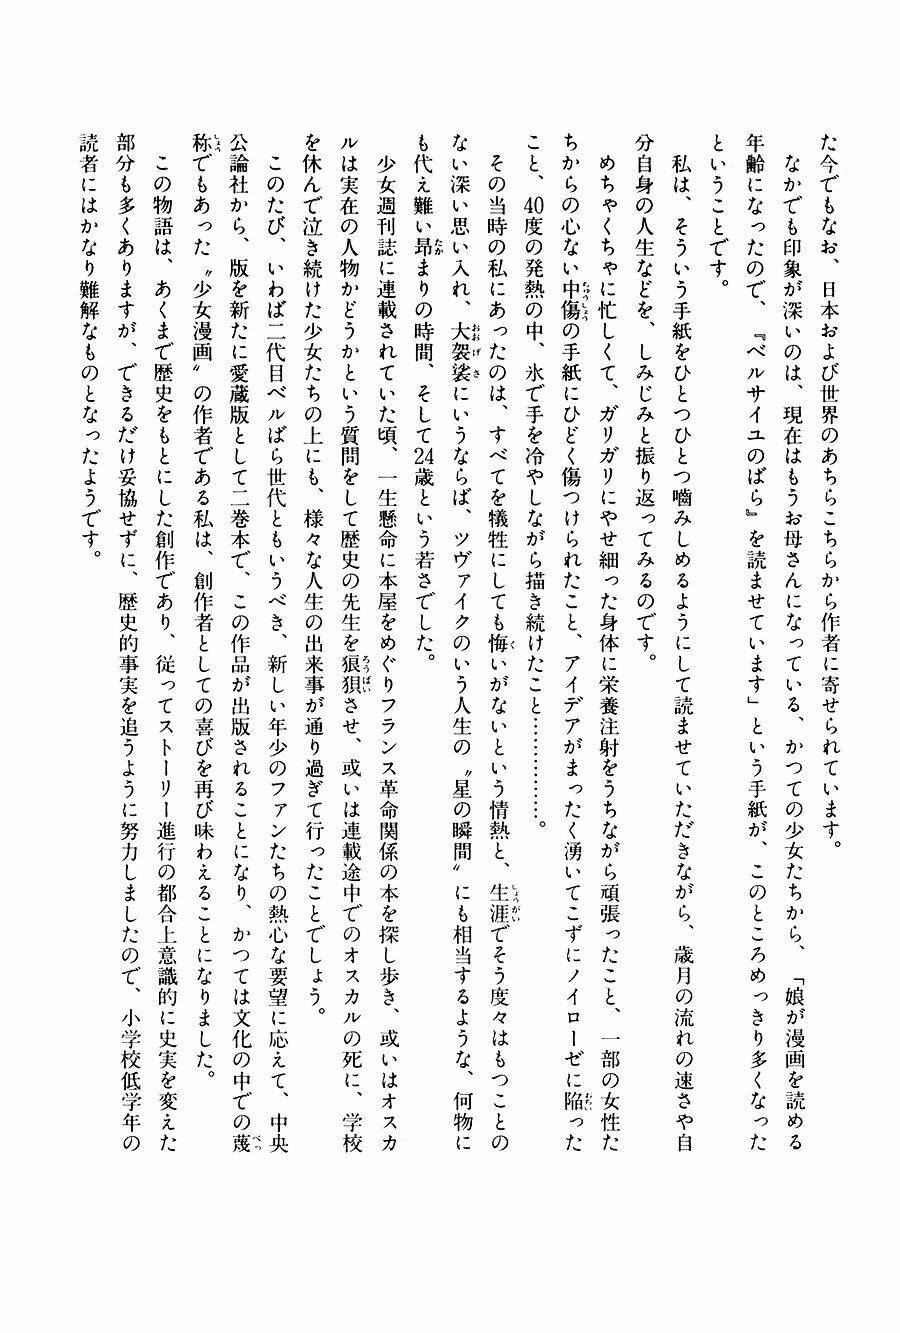 た今でもなお、日本および世界のあちらこちらから作者に寄せられています。
なかでも印象が深いのは、現在はもうお母さんになっている、かつての少女たちから、「娘が漫画を読める
年齢になったので、『ベルサイユのばら』を読ませています」という手紙が、このところめっきり多くなった
ということです。
私は、そういう手紙をひとつひとつ噛みしめるようにして読ませていただきながら、歳月の流れの速さや自
分自身の人生などを、しみじみと振り返ってみるのです。
めちゃくちゃに忙しくて、ガリガリにやせ細った身体に栄養注射をうちながら頑張ったこと、一部の女性た
ちからの心ない中傷の手紙にひどく傷つけられたこと、アイデアがまったく湧いてこずにノイローゼに陥った
こと、40度の発熱の中、氷で手を冷やしながら描き続けたこと……………。
その当時の私にあったのは、すべてを犠牲にしても悔いがないという情熱と、生涯でそう度々はもつことの
ない深い思い入れ、大袈裟にいうならば、ツヴァイクのいう人生の〝星の瞬間〟にも相当するような、何物に
も代え難い昂まりの時間、そして24歳という若さでした。
少女週刊誌に連載されていた頃、一生懸命に本屋をめぐりフランス革命関係の本を探し歩き、或いはオスカ
ルは実在の人物かどうかという質問をして歴史の先生を狼狽させ、或いは連載途中でのオスカルの死に、学校
を休んで泣き続けた少女たちの上にも、様々な人生の出来事が通り過ぎて行ったことでしょう。
このたび、いわば二代目ベルばら世代ともいうべき、新しい年少のファンたちの熱心な要望に応えて、中央
公論社から、版を新たに愛蔵版として二巻本で、この作品が出版されることになり、かつては文化の中での蔑
称でもあった〝少女漫画〟の作者である私は、創作者としての喜びを再び味わえることになりました。
この物語は、あくまで歴史をもとにした創作であり、従ってストーリー進行の都合上意識的に史実を変えた
部分も多くありますが、できるだけ妥協せずに、歴史的事実を追うように努力しましたので、小学校低学年の
読者にはかなり難解なものとなったようです。